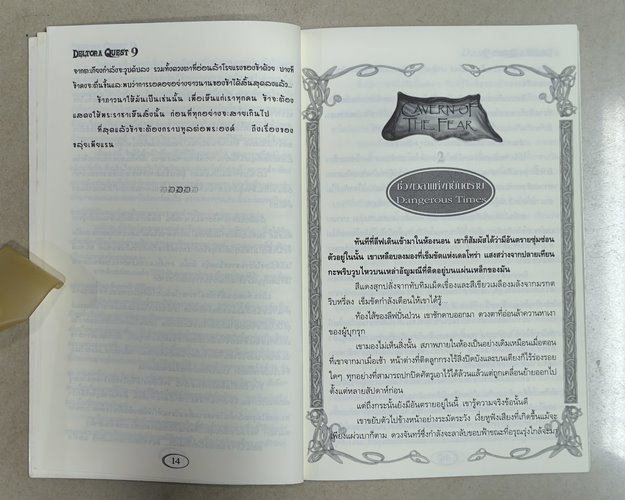 DELTORA QUEST 9
จากตะเกียงกำลังจะวูบดับลง รวมทั้งดวงตาที่อ่อนล้าโรยแรงของข้าด้วย บางที
ข้าคงจะตื่นขึ้นและพบว่าการรอคอยอย่างยาวนานของข้าได้สิ้นสุดลงแล้ว...
ข้าภาวนาให้มันเป็นเช่นนั้น เพื่อเห็นแก่เราทุกคน ข้าจะต้อง
แสดงให้พระราชาเห็นสิ่งนั้น ก่อนที่ทุกอย่างจะสายเกินไป
ที่สุดแล้วข้าจะต้องกราบทูลต่อพระองค์ ถึงเรื่องของ
14
CAVERN OF
THE FEAR
2
ช่วงเวลาแห่งอันตราย
Dangerous Times
ทันทีที่ลีฟเดินเข้ามาในห้องนอน เขาก็สัมผัสได้ว่ามีอันตรายซุ่มซ่อน
ตัวอยู่ในนั้น เขาเหลือบลงมองที่เข็มขัดแห่งเดลโทร่า แสงสว่างจากปลายเทียน
กะพริบวูบไหวบนเหล่าอัญมณีที่ติดอยู่บนแผ่นเหล็กของมัน
สีแดงสุกปลั่งจากทับทิมเมิดเชื่องและสีเขียวเมลืองมลังจากมรกต
ริบหรี่ลง เข็มขัดกำลังเตือนให้เขาได้รู้...
ท้องไส้ของลีฟปั่นป่วน เขาชักดาบออกมา ดวงตาที่อ่อนล้ากวาดหาเงา
ของผู้บุกรุก
เขามองไม่เห็นสิ่งนั้น สภาพภายในห้องเป็นอย่างเดิมเหมือนเมื่อตอน
ที่เขาจากมาเมื่อเช้า หน้าต่างที่ติดลูกกรงไร้สิ่งปิดบังและบนเตียงก็ไร้ร่องรอย
ใดๆ ทุกอย่างที่สามารถปกปิดศัตรูเอาไว้ได้ล้วนแล้วแต่ถูกเคลื่อนย้ายออกไป
ตั้งแต่หลายสัปดาห์ก่อน
แต่ถึงกระนั้นยังมีอันตรายอยู่ในนี้ เขารู้ความจริงข้อนั้นดี
เขาขยับตัวไปข้างหน้าอย่างระมัดระวัง เงี่ยหูฟังเสียงที่เกิดขึ้นแม้จะ
เพียงแผ่วเบาก็ตาม ดวงจันทร์ซึ่งกำลังจะลาลับขอบฟ้าขณะที่อรุณรุ่งใกล้จะมา